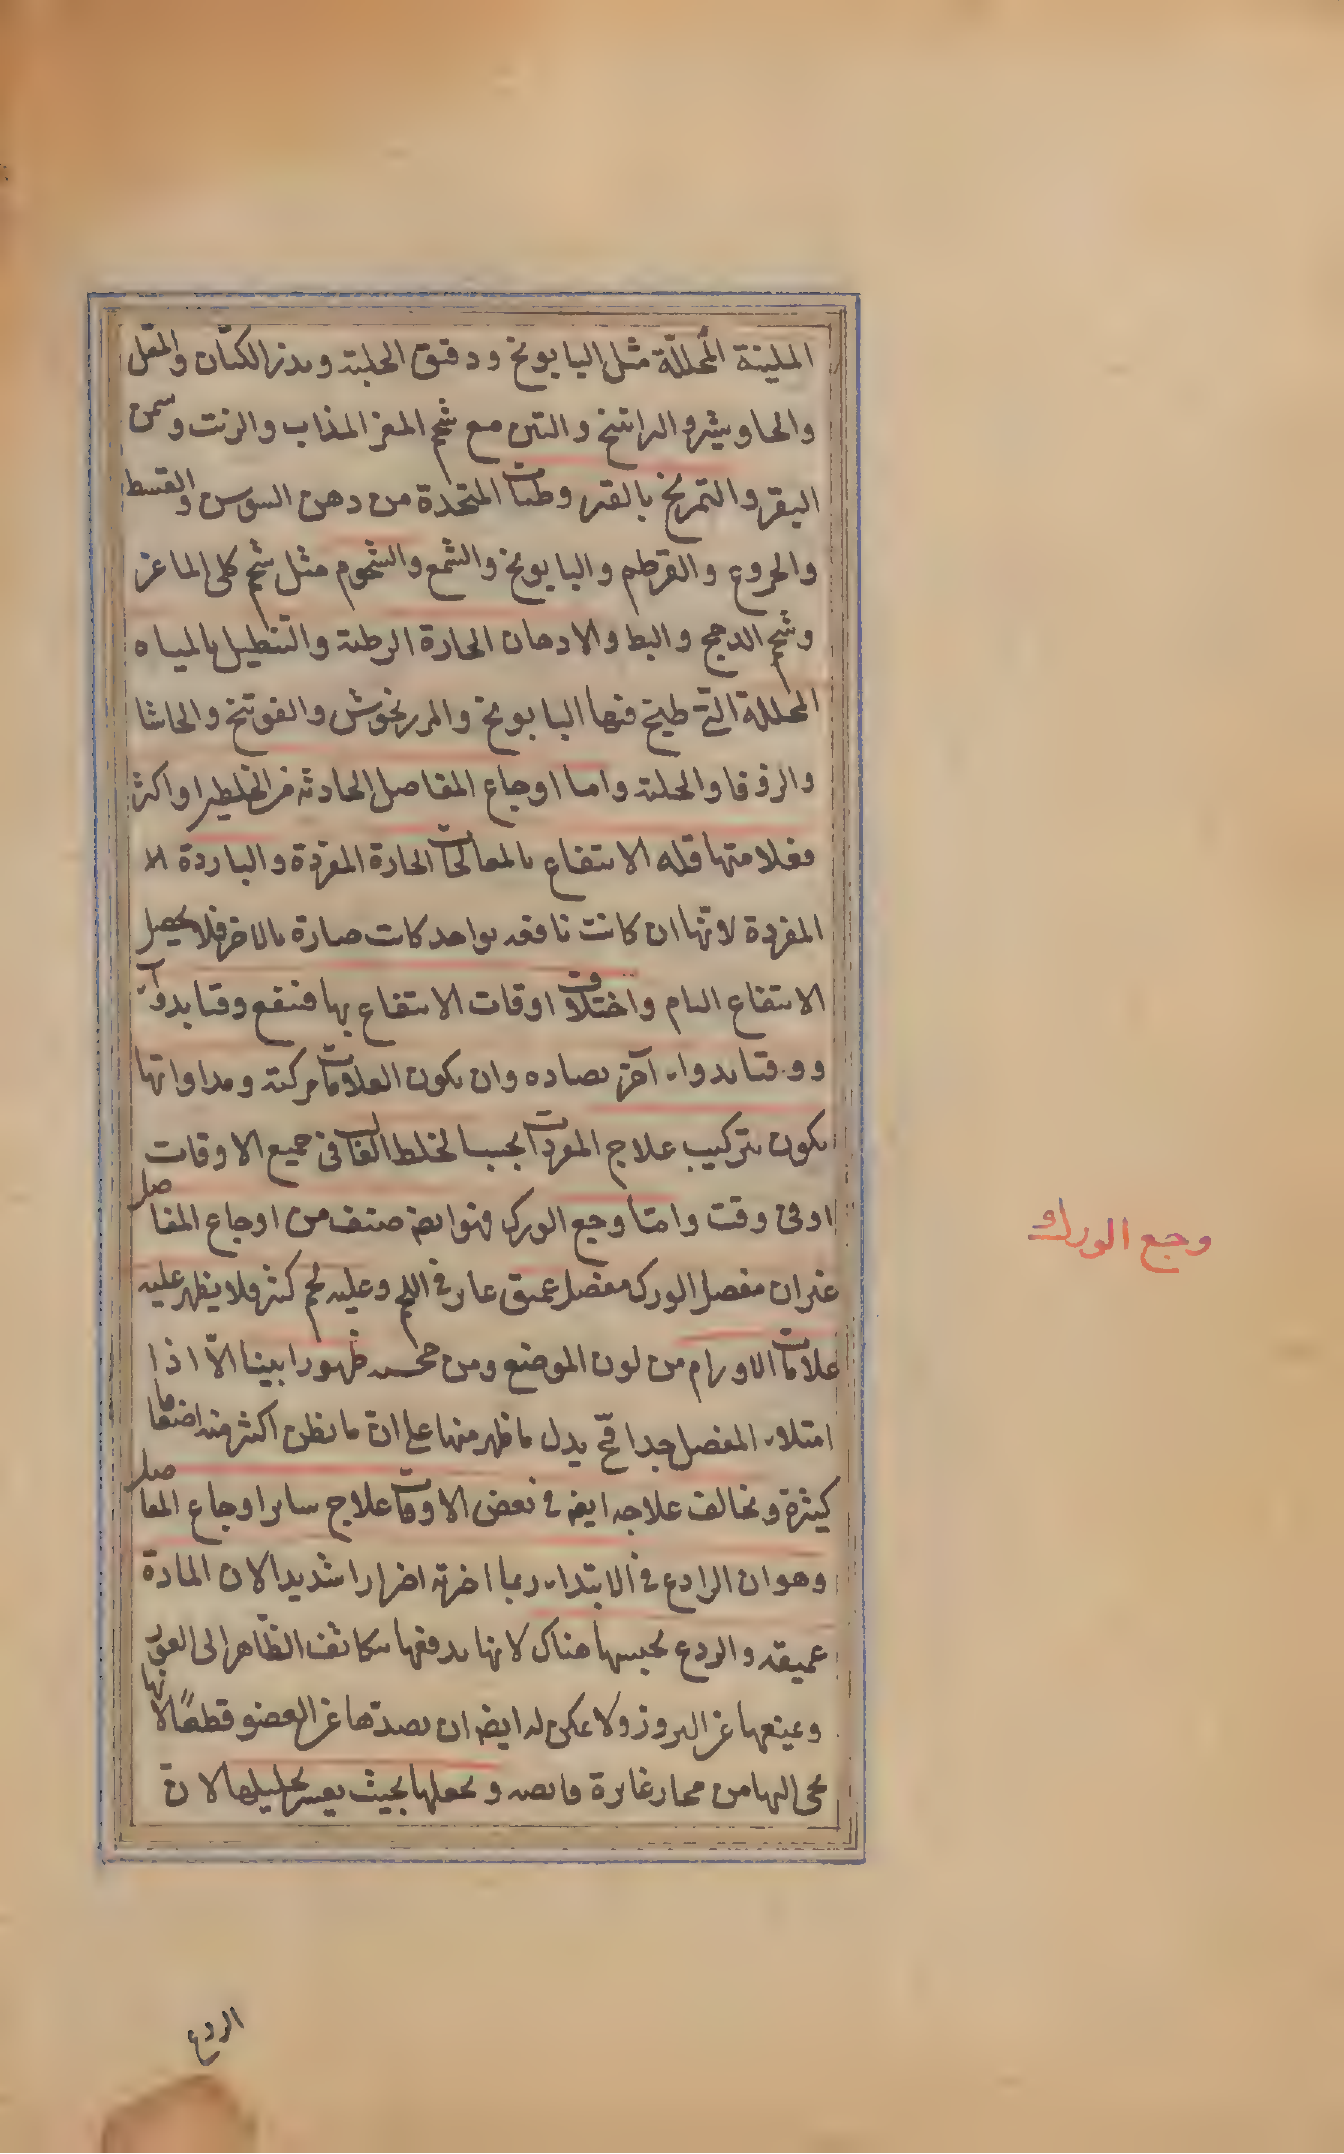 الملينة المحللة مثل البابونج ودقيق الحلبة وبذر الكتان والمقل
والجاوشير والراتينج والتين مع شحم المعز المذاب والزيت وسمن
البقر والتمريخ بالقيروطيات المتخذة من دهن السوسن والقسط
والخروع والقرطم والبابونج والشمع والشحوم مثل شحم كلى الماعز
وشحم الدجج والبط والادهان الحارة الرطبة والتنطيل بالمياه
المحللة التي طبخ فيها البابونج والمرزنجوش والفوتنج والحاشا
والزوفا والحلبة واما اوجاع المفاصل الحادثة من الخلطين او اكثر
فعلامتها قلة الانتفاع بالمعالجات الحارة المفردة والباردة الا
المفردة لانها ان كانت نافعة بواحد كانت ضارة بالاخر فلا يحصل
الانتفاع التام واختلاف اوقات الانتفاع بها فينفع وقتا بدواء
ووقتا بدواء آخر يضاده وان يكون العلامات مركبة ومداواتها
يكون بتركيب علاج المفردات بحسب الخلط الغالب في جميع الاوقات
او في وقت واما وجع الورك فهو ايضا صنف من اوجاع المفاصل
غير ان مفصل الورك مفصل عميق غاير في اللحم وعليه لحم كثير فلا يظهر عليه
علامات الاورام من لون الموضع ومن مجسه ظهورا بينا الا اذا
امتلاء المفصل جدا فح يدل ما ظهر منها على ان ما بطن اكثر منه اضعافا
كثيرة ويخالف علاجه ايضا في بعض الاوقات علاج ساير اوجاع المفاصل
وهو ان الرادع في الابتداء ربما اضر به اضرارا شديدا لان المادة
عميقة والردع يحبسها هناك لانها يدفعها بتكاثف الظاهر الى الغور
ويمنعها عن البروز ولا يمكن له ايضا ان يصدها عن العضو قطعا لانها
تجى اليها من مجار غايرة فابضه ويجعلها بحيث يعسر تحليلها لان
الردع
وجع الورك